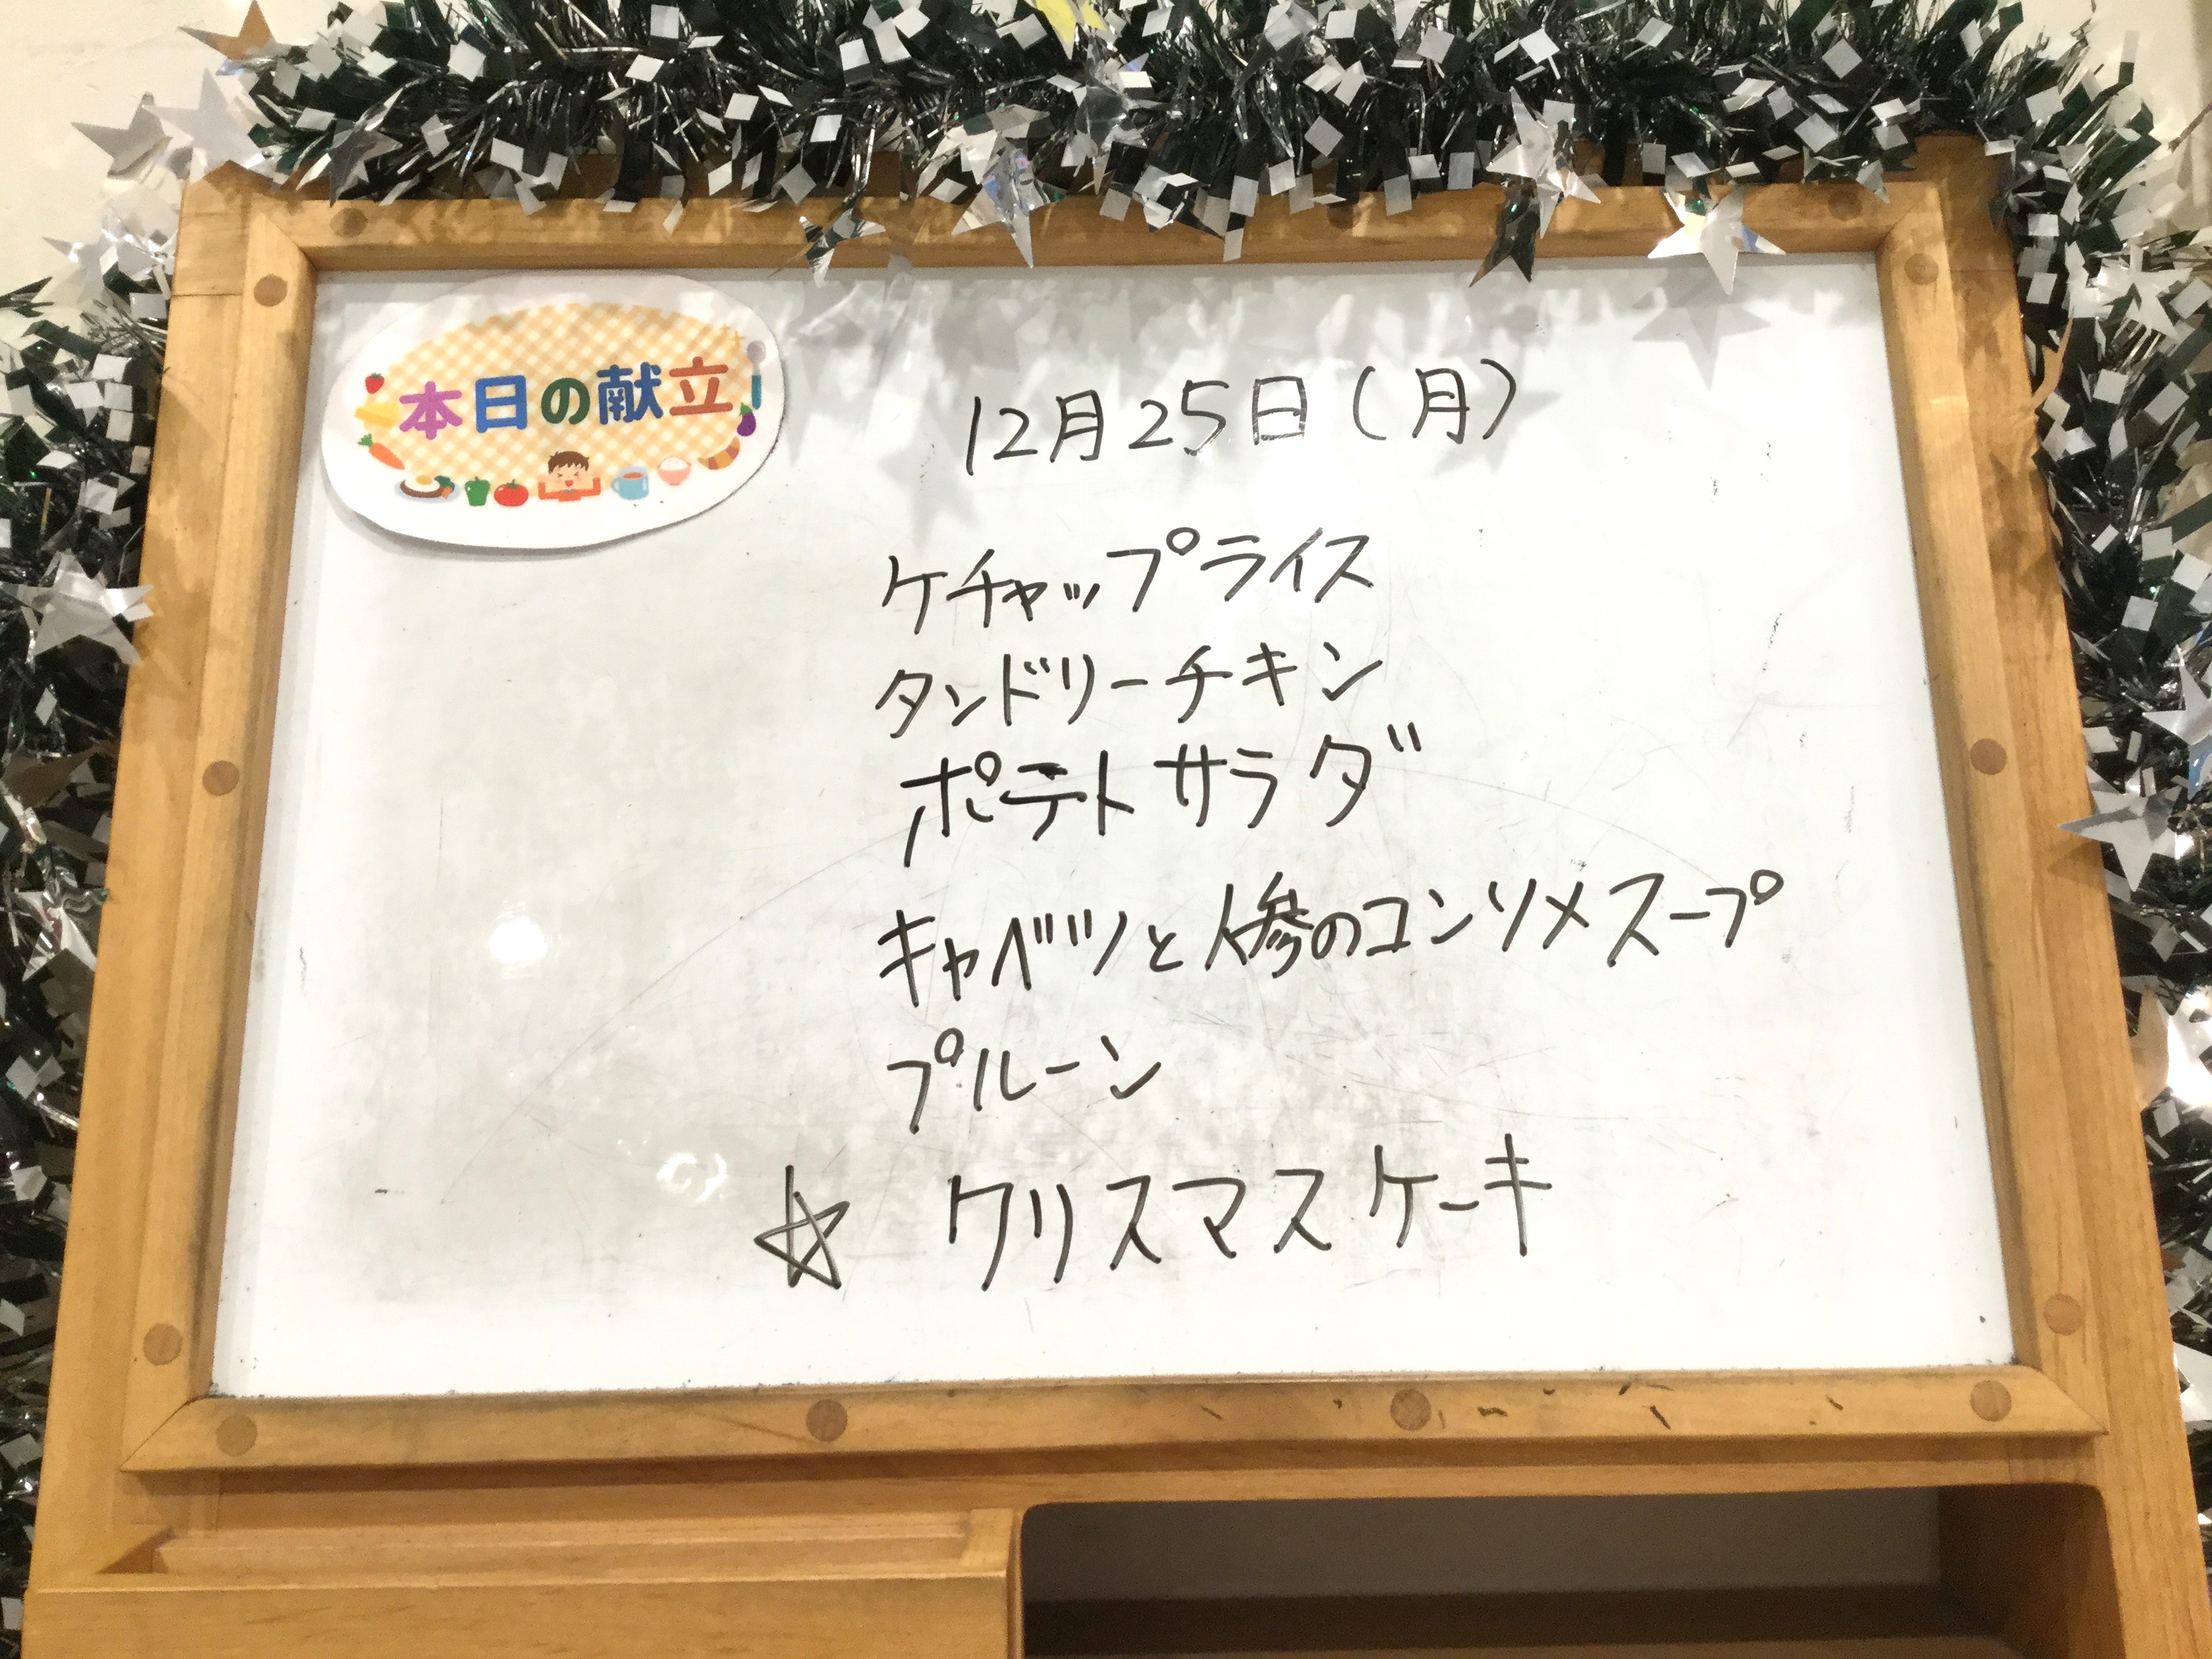 本日の献立
12月25日(月)
ケチャップライス
タンドリーチキン
ポテトサラダ
キャベツと人参のコンソメスープ
プルーン
☆ クリスマスケーキ